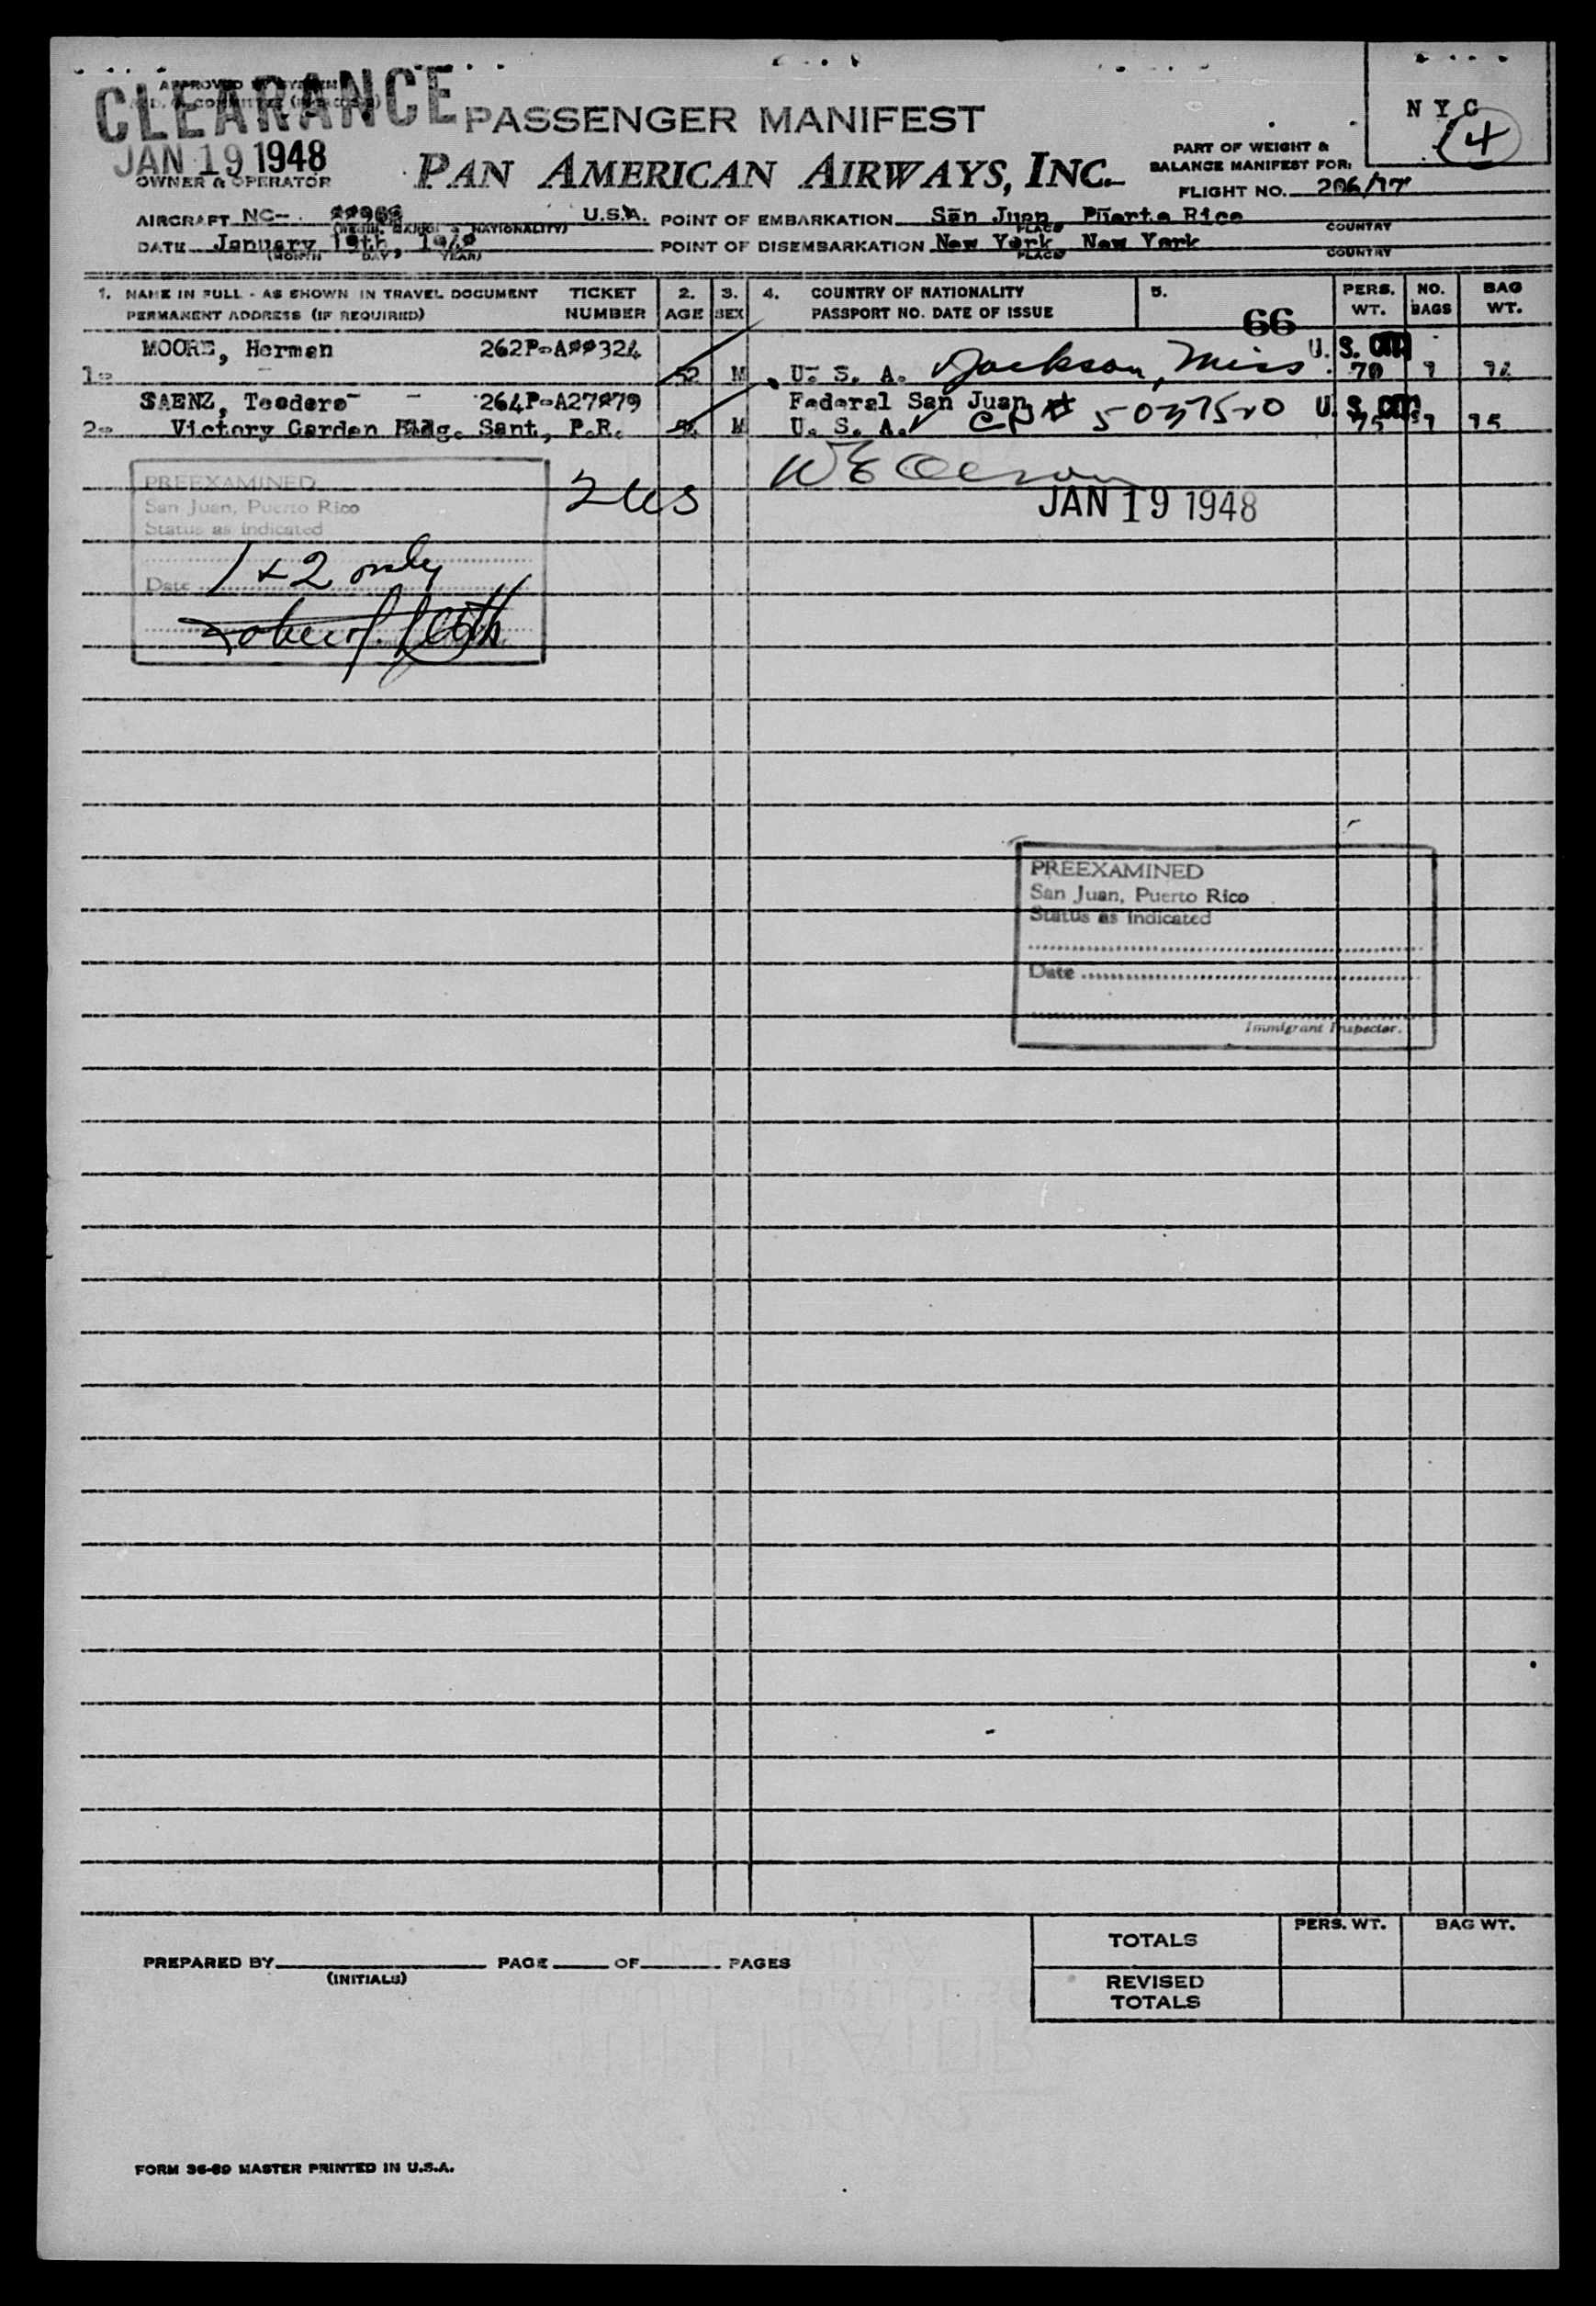 CLEARANCE
JAN 19 1948
OWNER & OPERATOR
PASSENGER MANIFEST
PAN AMERICAN AIRWAYS, INC.
N Y C
4
PART OF WEIGHT &
BALANCE MANIFEST FOR:
FLIGHT NO. 206/
AIRCRAFT NC- U.S.A. POINT OF EMBARKATION San Juan, Puerto Rico
NATIONALITY) PLACE COUNTRY
DATE January 19th, 1948 POINT OF DISEMBARKATION New York, New York
(MONTH DAY YEAR) PLACE COUNTRY
1. NAME IN FULL - AS SHOWN IN TRAVEL DOCUMENT TICKET 2. 3. 4. COUNTRY OF NATIONALITY 5. PERS. NO. BAG
PERMANENT ADDRESS (IF REQUIRED) NUMBER AGE SEX PASSPORT NO. DATE OF ISSUE WT. BAGS WT.
66
MOORE, Herman 262P-A 324 U. S.
1- 52 M U. S. A. Jackson, Miss 70
SAENZ, Teodoro 264P-A27 79 Federal San Juan
2- Victory Garden Bldg. Sant, P.R. M U. S. A. U. S. 75
PREEXAMINED
San Juan, Puerto Rico
Status as indicated
1 + 2 only
Date
2 US
JAN 19 1948
PREEXAMINED
San Juan, Puerto Rico
Status as indicated
Date
Immigrant Inspector.
PREPARED BY (INITIALS) PAGE OF PAGES
PERS. WT. BAG WT.
TOTALS
REVISED
TOTALS
FORM 36-89 MASTER PRINTED IN U.S.A.